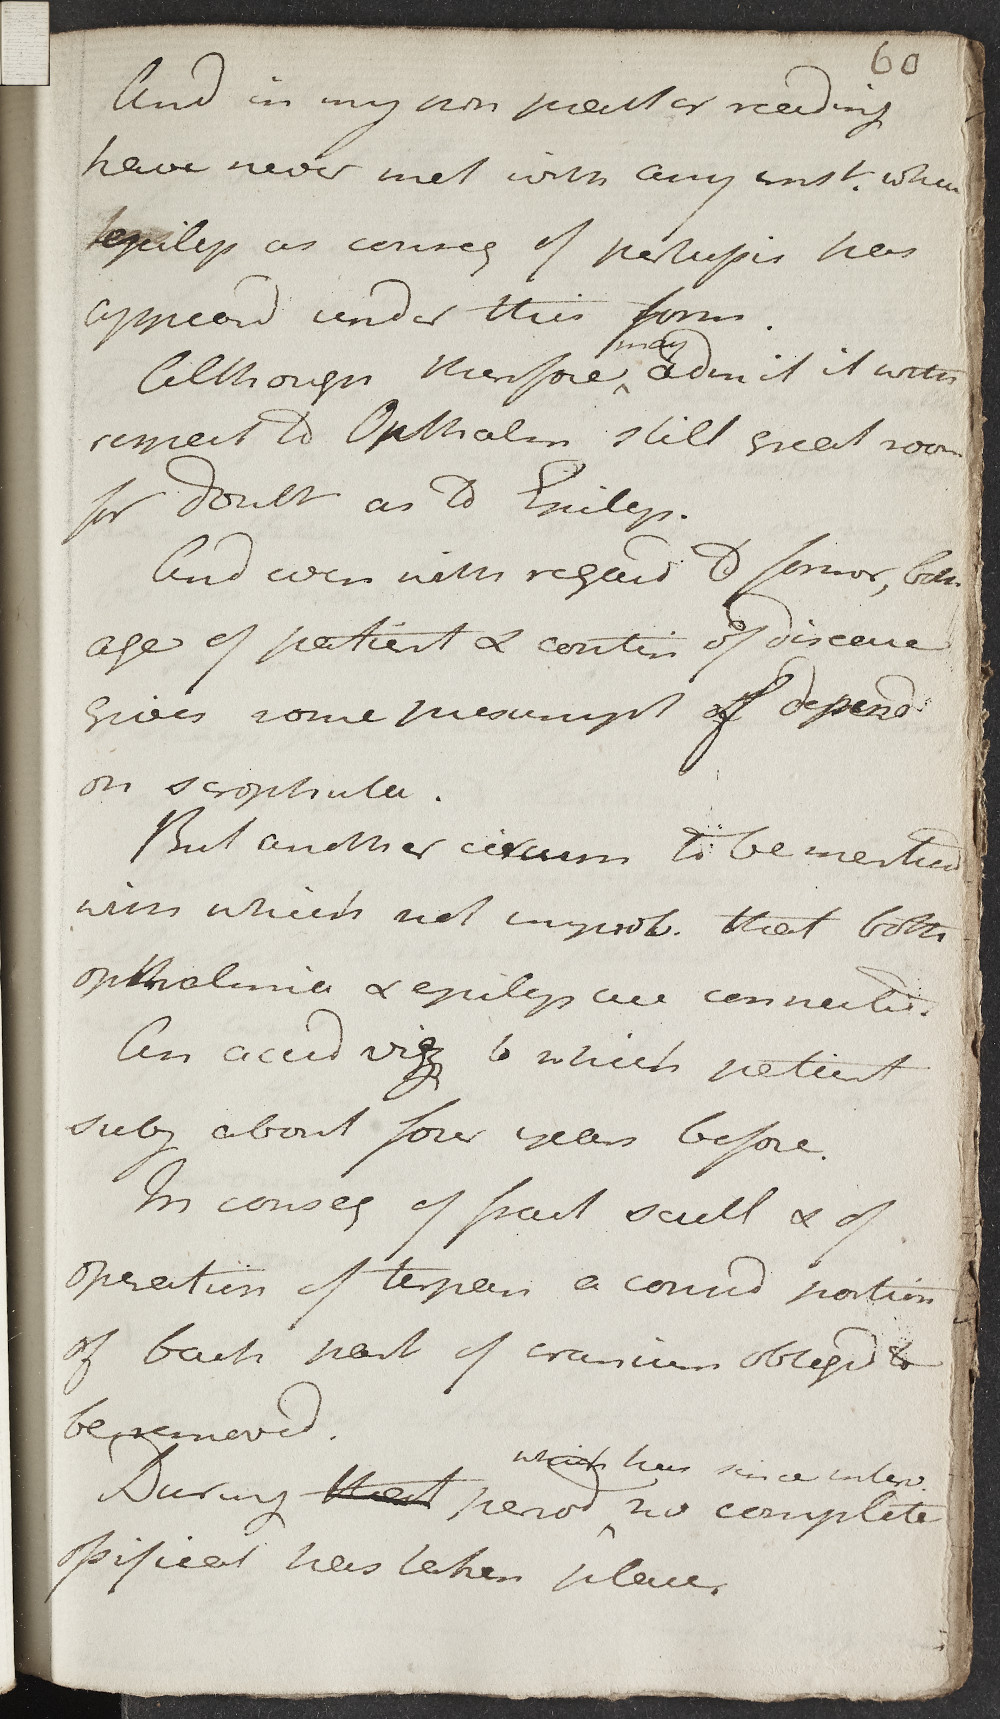 60
And in my own pract or reading
have never met with any inst. when
epilep as conseq of pertussis has
appeard under this form.
Although therefore may admit it with
respect to Opthalm still great room
for doubt as to Epilep.
And even with regard to former, both
age of patient & contin of disease
gives some presumpt of depend
on scrophula.
But another circum to be mentiond
with which not improb. that both
opthalmia & epilep are connected.
An accid viz to which patient
subj about four years before.
In conseq of fract scull & of
operation of trepan a consid portion
of back part of cranium obliged to
be removed.
which has since interv.
During that period no complete
ossificat has taken place.